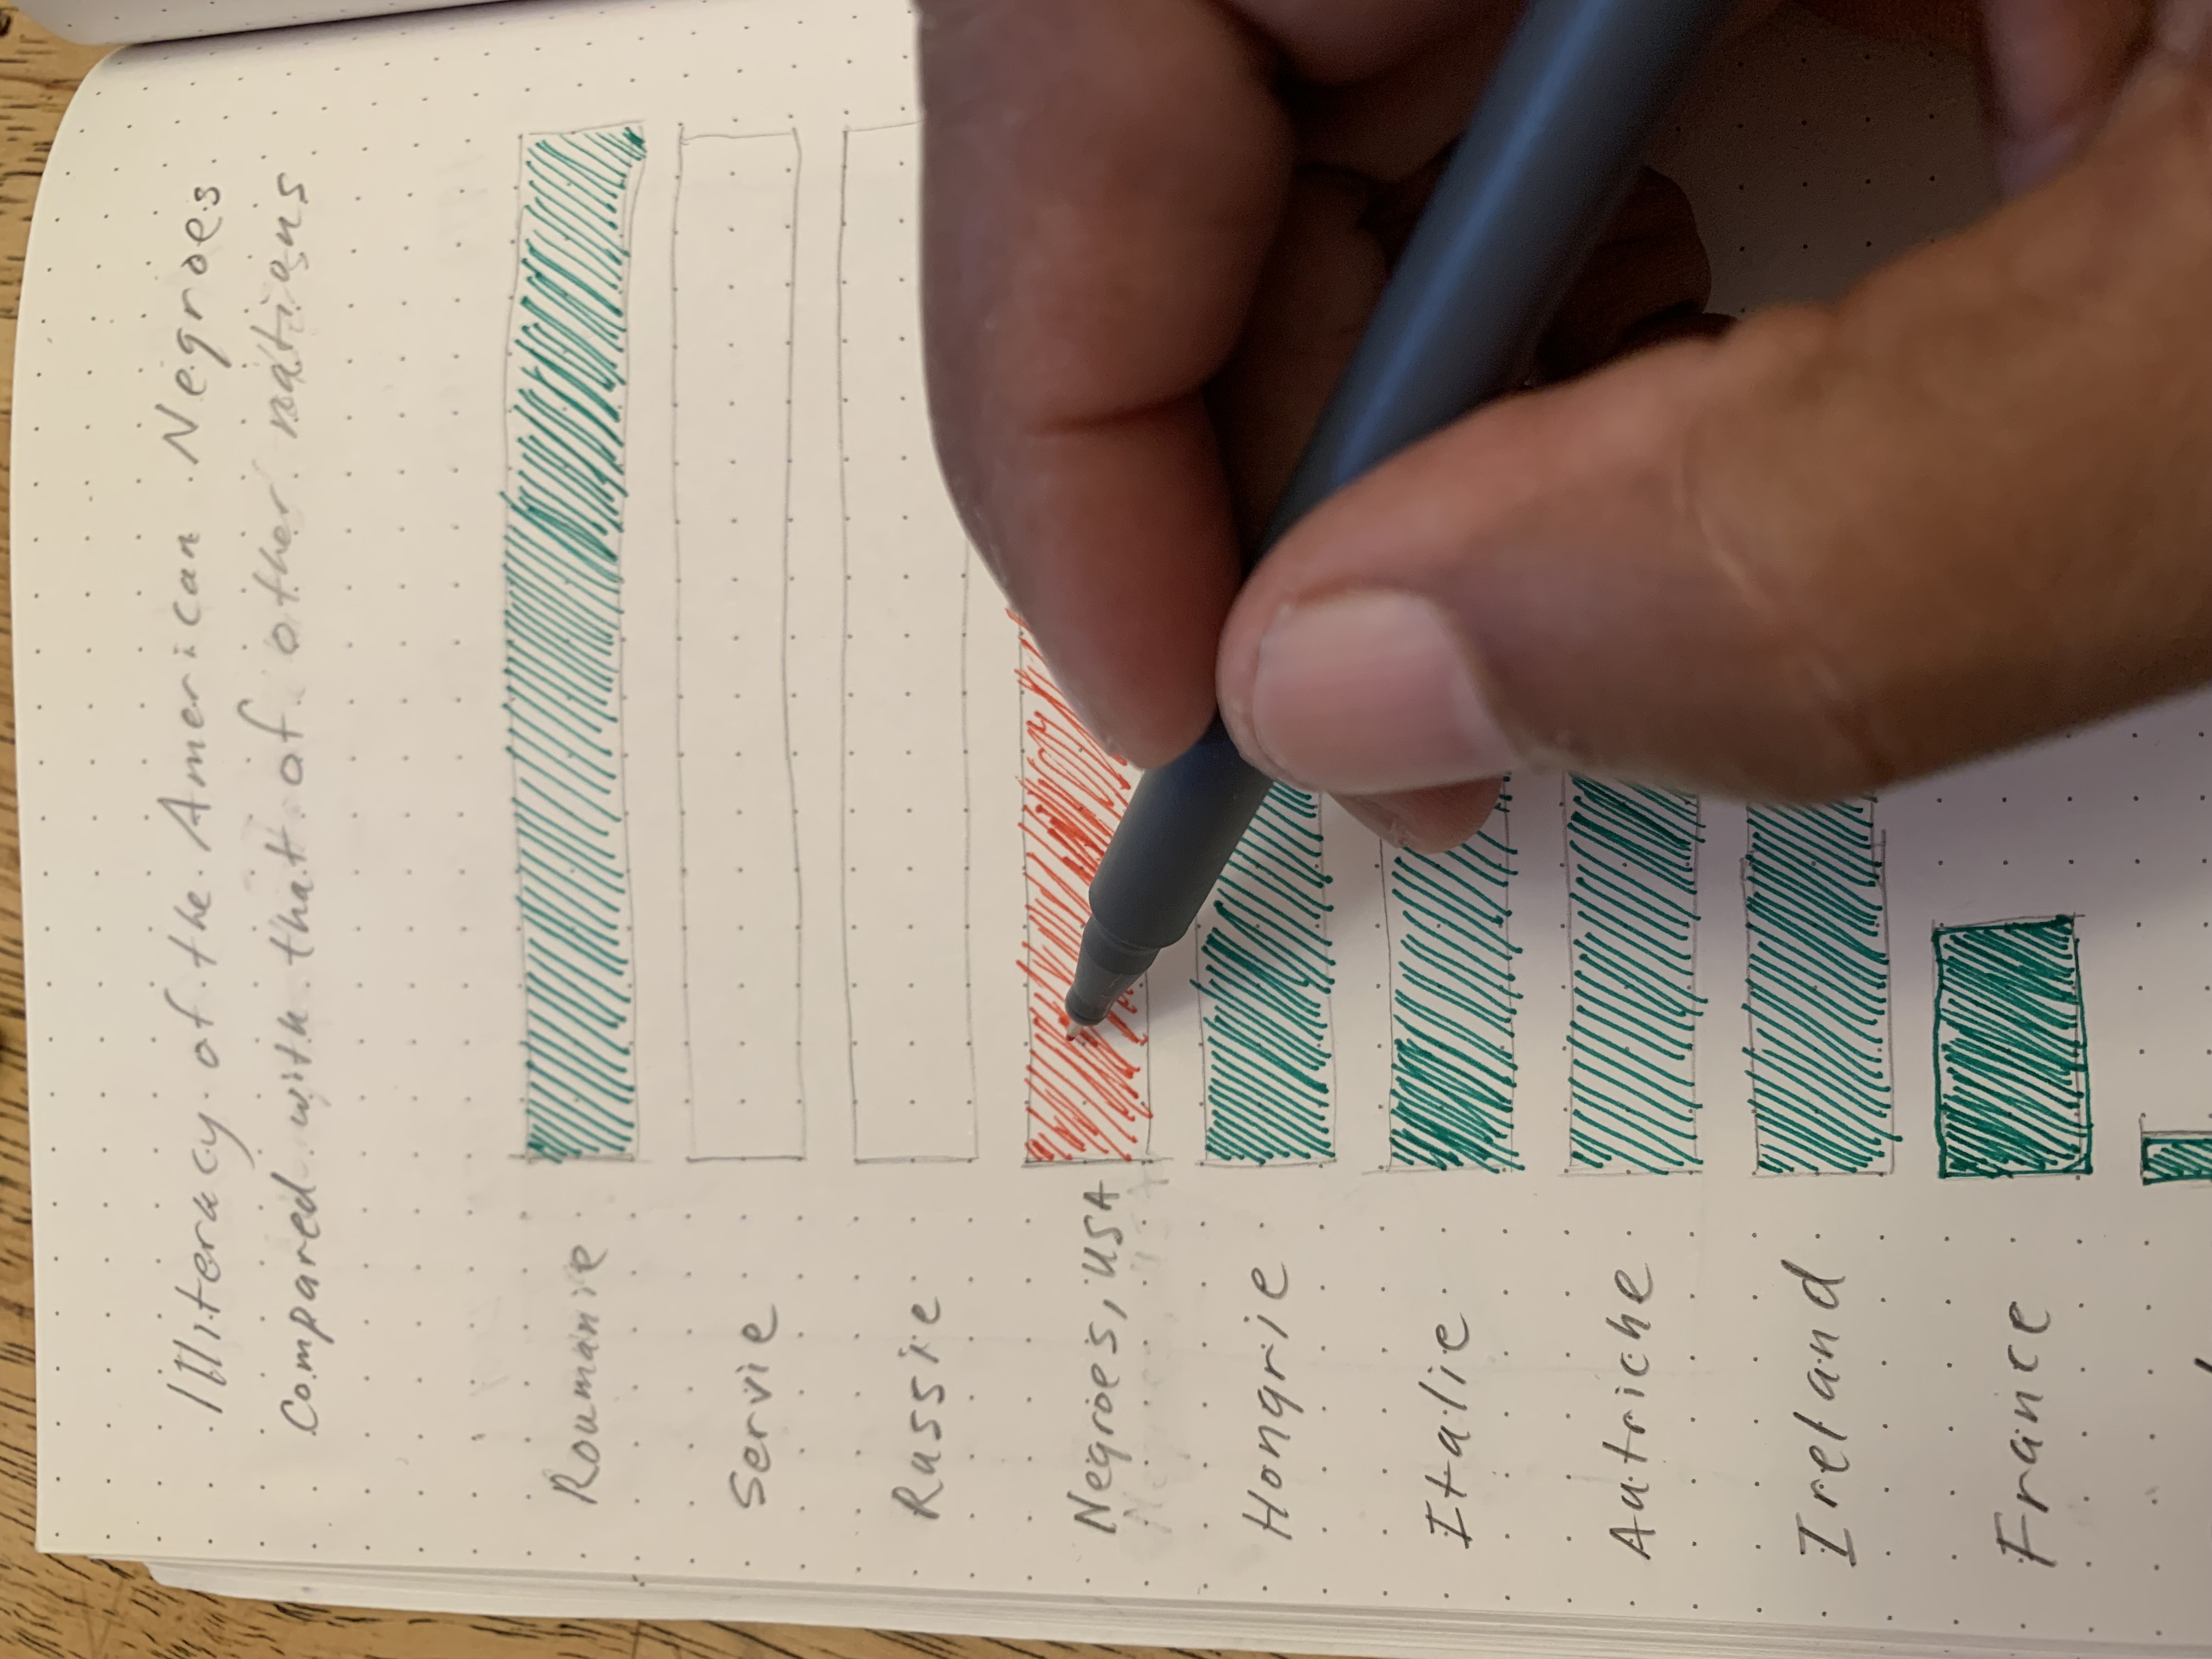 Illiteracy of the American Negroes
Compared with that of other nations
Roumanie
Servie
Russie
Negroes, USA
Hongrie
Italie
Autriche
Ireland
France